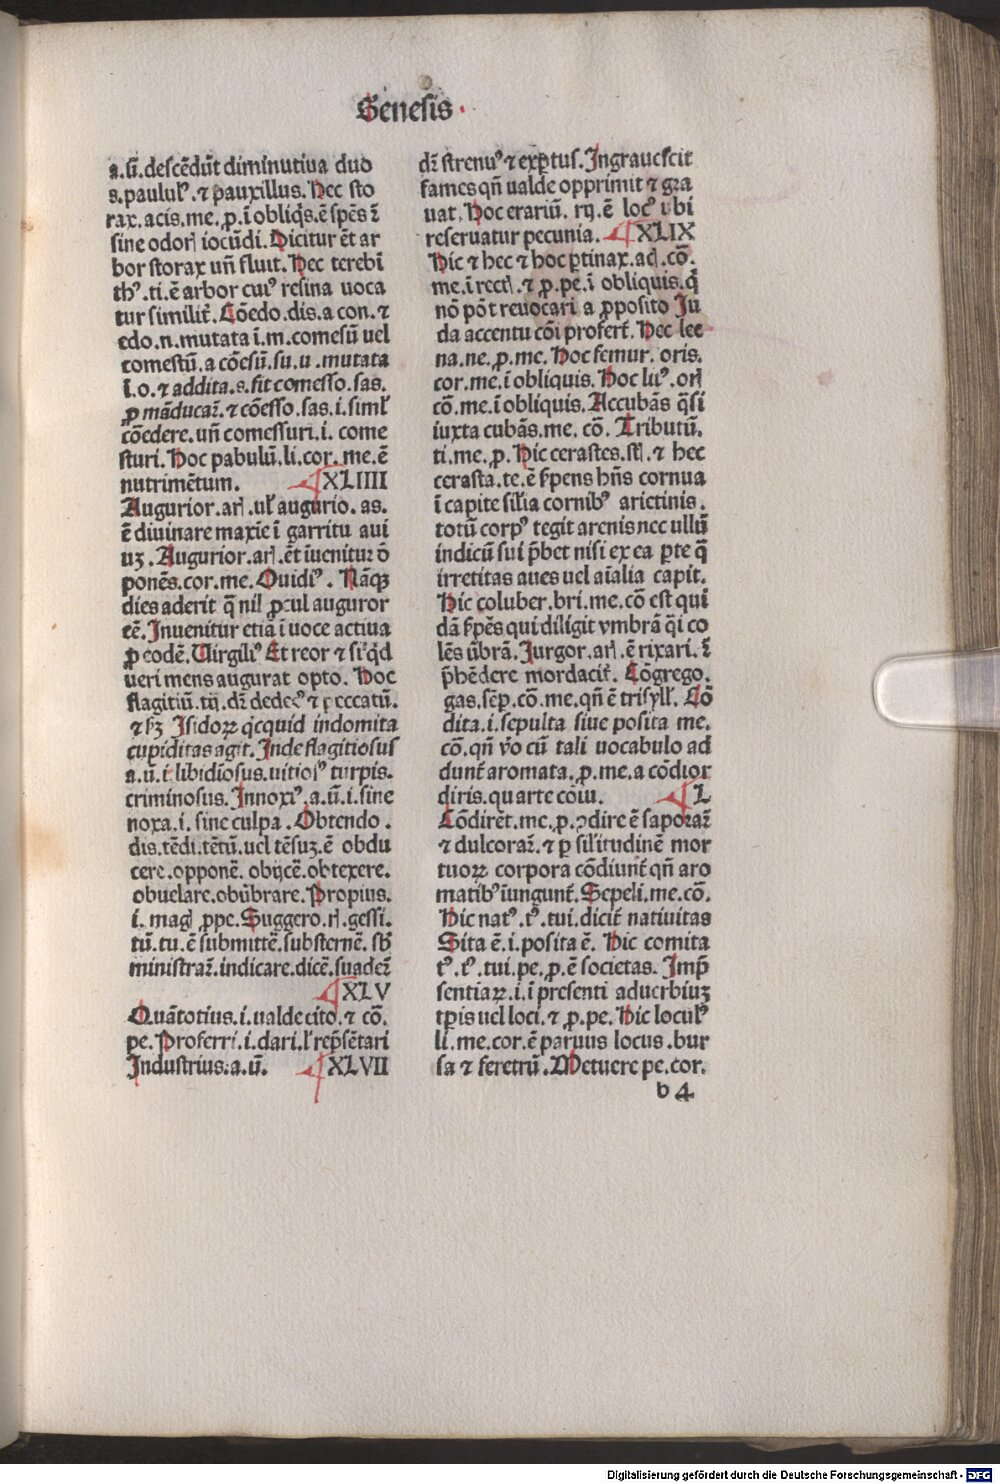 Genesis.
a.ū.descēdūt diminutiua duo
s.paulul⁹.⁊ pauxillus.Hec sto
rax.acis.me.ꝓ.ī obliq̄s.ē spēs ī
sine odorꝭ iocūdi.Dicitur ēt ar
bor storax un̄ fluit.Hec terebī
th⁹.ti.ē arbor cui⁹ resina uoca
tur similit̄.Cōedo.dis.a con.⁊
edo.n.mutata ī.m.comesū uel
comestū.a cōesū.su.u.mutata
ī.o.⁊ addita.s.fit comesso.sas.
ꝓ māducar̄.⁊ cōesso.sas.i.siml̄
cōedere.un̄ comessuri.i. come
sturi.Hoc pabulū.li.cor.me.ē
nutrimētum. XLIIII
Augurior.arꝭ.ul̄ augurio.as.
ē diuinare maxīe ī garritu aui
uꝫ.Augurior.arꝭ.ēt īuenitur ō
ponēs.cor.me.Ouidi⁹. Nāqꝫ
dies aderit q̄ nil ꝓcul auguror
eē.Inuenitur etiā ī uoce actiua
ꝓ eodē.Uirgili⁹ Et reor ⁊ si q̇d
ueri mens augurat opto. Hoc
flagitiū.tij.dr̄ dedec⁹ ⁊ peccatū.
⁊ ẜꝫ Isidoꝝ q̇cquid indomita
cupiditas agit.Inde flagitiosus
a.ū.i.libidīosus.uitios⁹ turpis.
criminosus.Innoxi⁹.a.ū.i.sine
noxa.i.sine culpa.Obtendo.
dis.tēdi.tētū.uel tēsuꝫ.ē obdu
cere.opponē.obijcē.obtexere.
obuelare.obūbrare.Propius.
i. magꝭ ꝓpe.Suggero.rꝭ.gessi.
tū.tu.ē submittē.substernē.sb̄
ministrar̄.indicare.dicē.suader̄
XLV
Quātotius.i.ualde cito.⁊ cō.
pe.Proferri.i.dari.l̄ rep̄sētari
Industrius.a.ū. XLVII
dr̄ strenu⁹ ⁊ exꝑtus.Ingrauescit
fames qn̄ ualde opprimit ⁊ gra
uat.Hoc erariū. rij.ē loc⁹ ubi
reseruatur pecunia. XLIX
Hic ⁊ hec ⁊ hoc ꝑtinax.aꝗ.cō.
me.ī rectꝭ.⁊ ꝓ.pe.ī obliquis.q̄
nō pōt reuocari a ꝓposito Iu
da accentu cōi profert̄.Hec lee
na.ne.ꝓ.me.Hoc femur. oris.
cor.me.ī obliquis.Hoc lit⁹.orꝭ
cō.me.ī obliquis.Accubās q̄si
iuxta cubās.me. cō. Tributū.
ti.me.ꝓ.Hic cerastes.stꝭ.⁊ hec
cerasta.te.ē ẜpens hn̄s cornua
ī capite sil̄ia cornib⁹ arietinis.
totū corp⁹ tegit arenis nec ullū
indicū sui p̄bet nisi ex ea ꝑte q̄
irretitas aues uel aīalia capit.
Hic coluber.bri.me.cō est qui
dā ẜpēs qui diligit vmbrā q̄i co
lēs ūbrā.Iurgor.arꝭ.ē rixari. l̄
p̄hēdere mordacit̄. Cōgrego.
gas.sēp.cō.me.qn̄ ē trisyll̄. Cō
dita.i.sepulta siue posita me.
cō.qn̄ v̄o cū tali uocabulo ad
dunt̄ aromata.ꝓ.me.a cōdior
diris.quarte cōiu. L
Cōdirēt.me.ꝓ.ꝯdire ē saporar̄
⁊ dulcorar̄.⁊ ꝑ silitudinē mor
tuoꝝ corpora cōdiunt̄ qn̄ aro
matib⁹ iungunt̄.Sepeli.me.cō.
Hic nat⁹.t⁹.tui.dicit̄ natiuitas
Sita ē.i.posita ē. Hic comita
t⁹.t⁹.tui.pe.ꝓ.ē societas. Imp̄
sentiaꝝ.i.ī presenti aduerbiuꝫ
tp̄is uel loci.⁊ ꝓ.pe.Hic locul⁹
li.me.cor.ē paruus locus.bur
sa ⁊ feretrū.Metuere pe.cor.
b 4
Digitalisierung gefördert durch die Deutsche Forschungsgemeinschaft - DFG